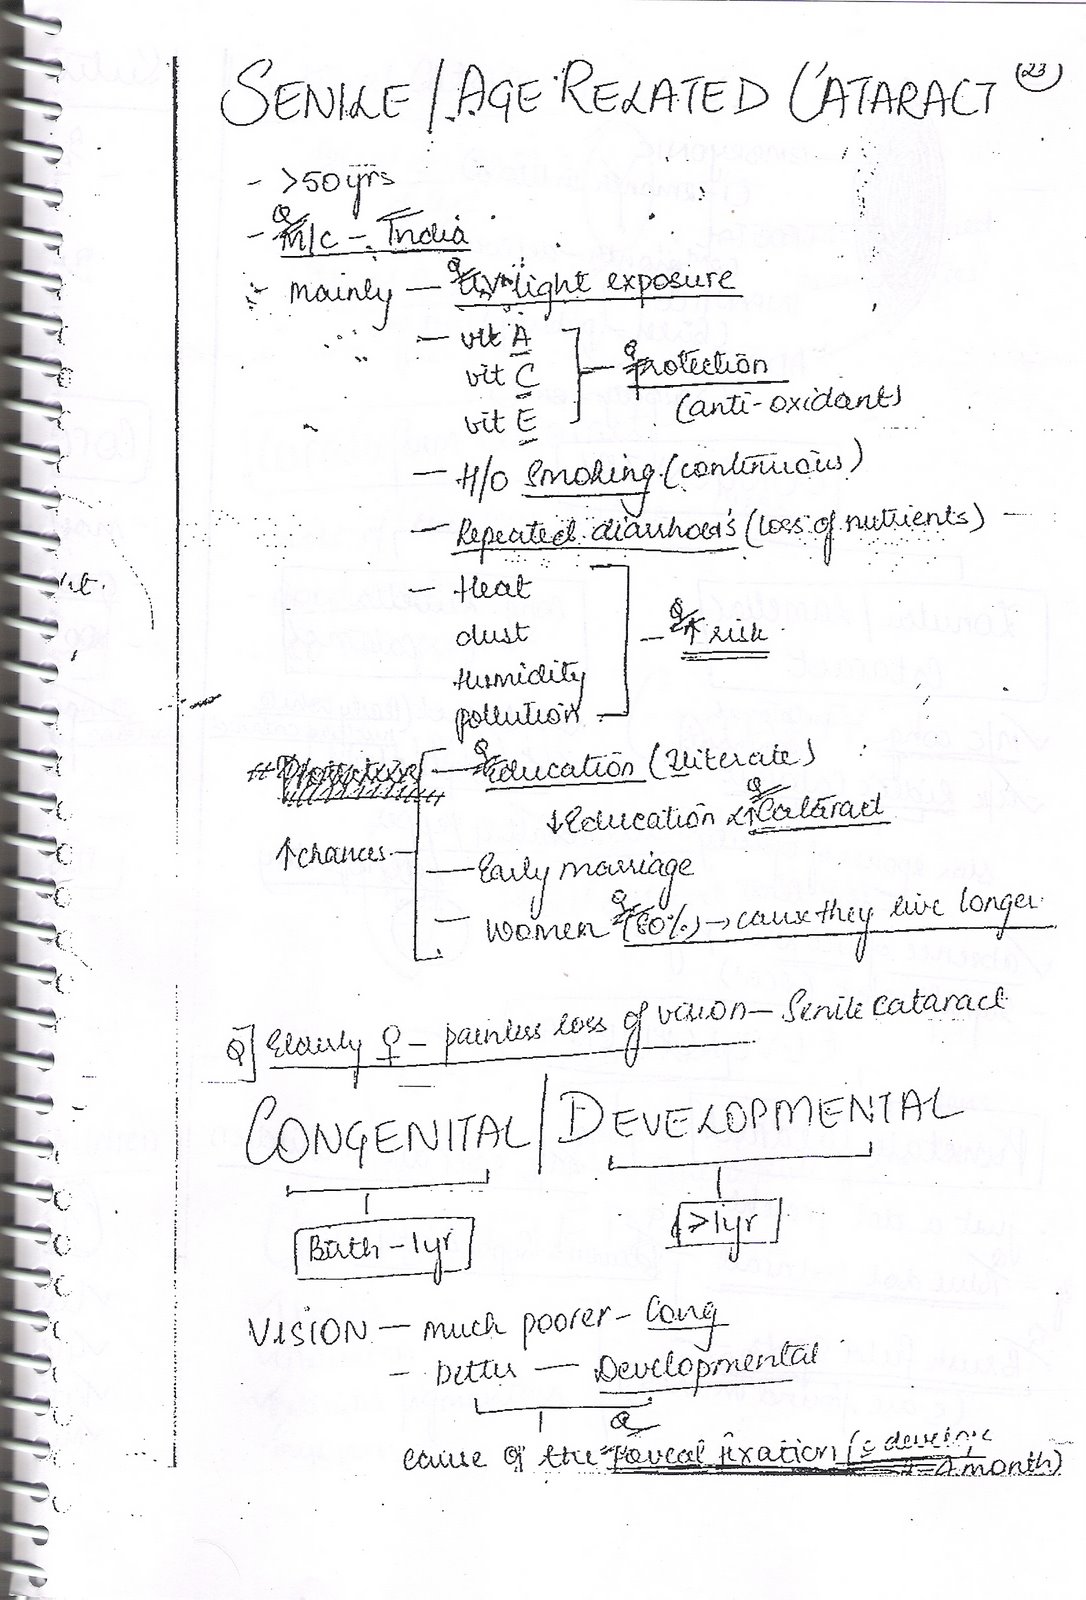 SENILE / AGE RELATED CATARACT (23)
- >50 yrs
Q
- M/c - India
mainly — Q UV light exposure
- vit A
vit C — Q protection
(anti-oxidants)
vit E
— H/O smoking (continuous)
— Repeated diarrhoea's (loss of nutrients)
— Heat
dust — Q ↑ risk
Humidity
pollution
# — Q Education (illiterate)
↓ Education Q ↑ Cataract
↑ chances — Early marriage
— Women Q (60%) → cause they live longer
Q] Elderly ♀ - painless loss of vision — Senile cataract
CONGENITAL / DEVELOPMENTAL
Birth - 1yr >1yr
VISION — much poorer - Cong
- better — Developmental
Q
cause of the foveal fixation ( develops
2-4 month)
ht.